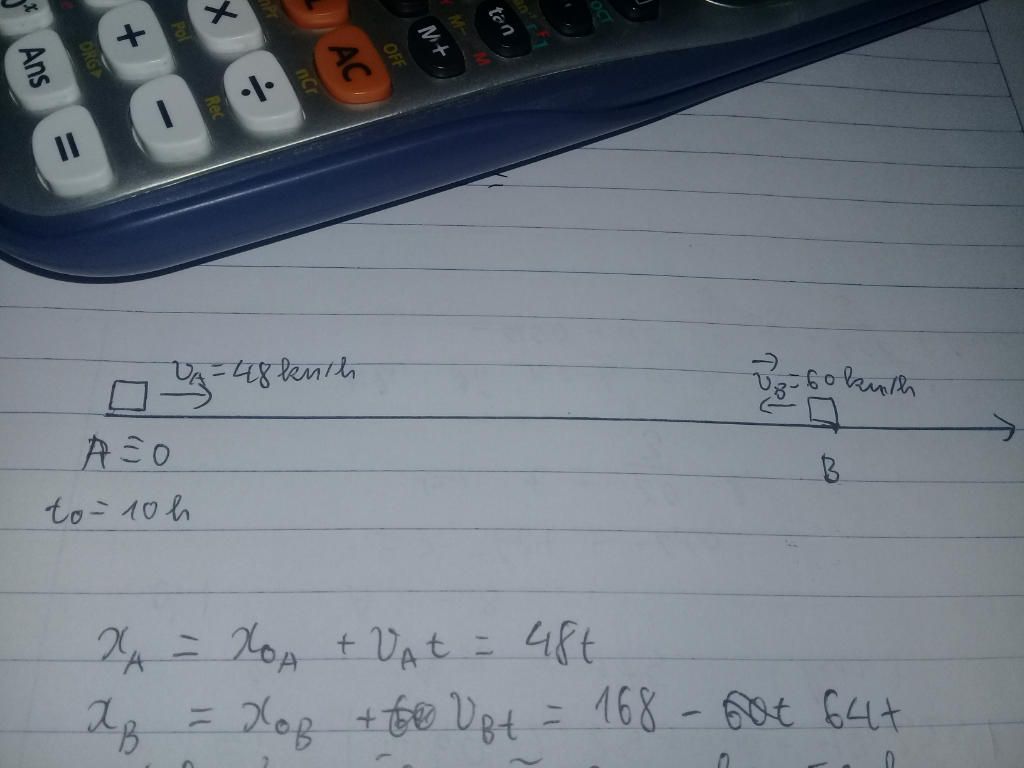 x OCT
+ Pol × M+ M- tan
Ans DRG▸ AC OFF M
= − Rec ÷ nCr
v_A = 48 km/h v_B = 60 km/h
A ≡ 0 B
t₀ = 10 h
x_A = x_{0A} + v_A t = 48t
x_B = x_{0B} + v_B t = 168 - 60t 64t